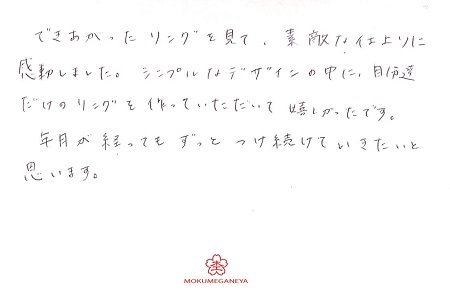 できあがったリングを見て、素敵な仕上りに
感動しました。シンプルなデザインの中に、自分達
だけのリングを作っていただいて嬉しかったです。
年月が経ってもずっとつけ続けていきたいと
思います。
MOKUMEGANEYA